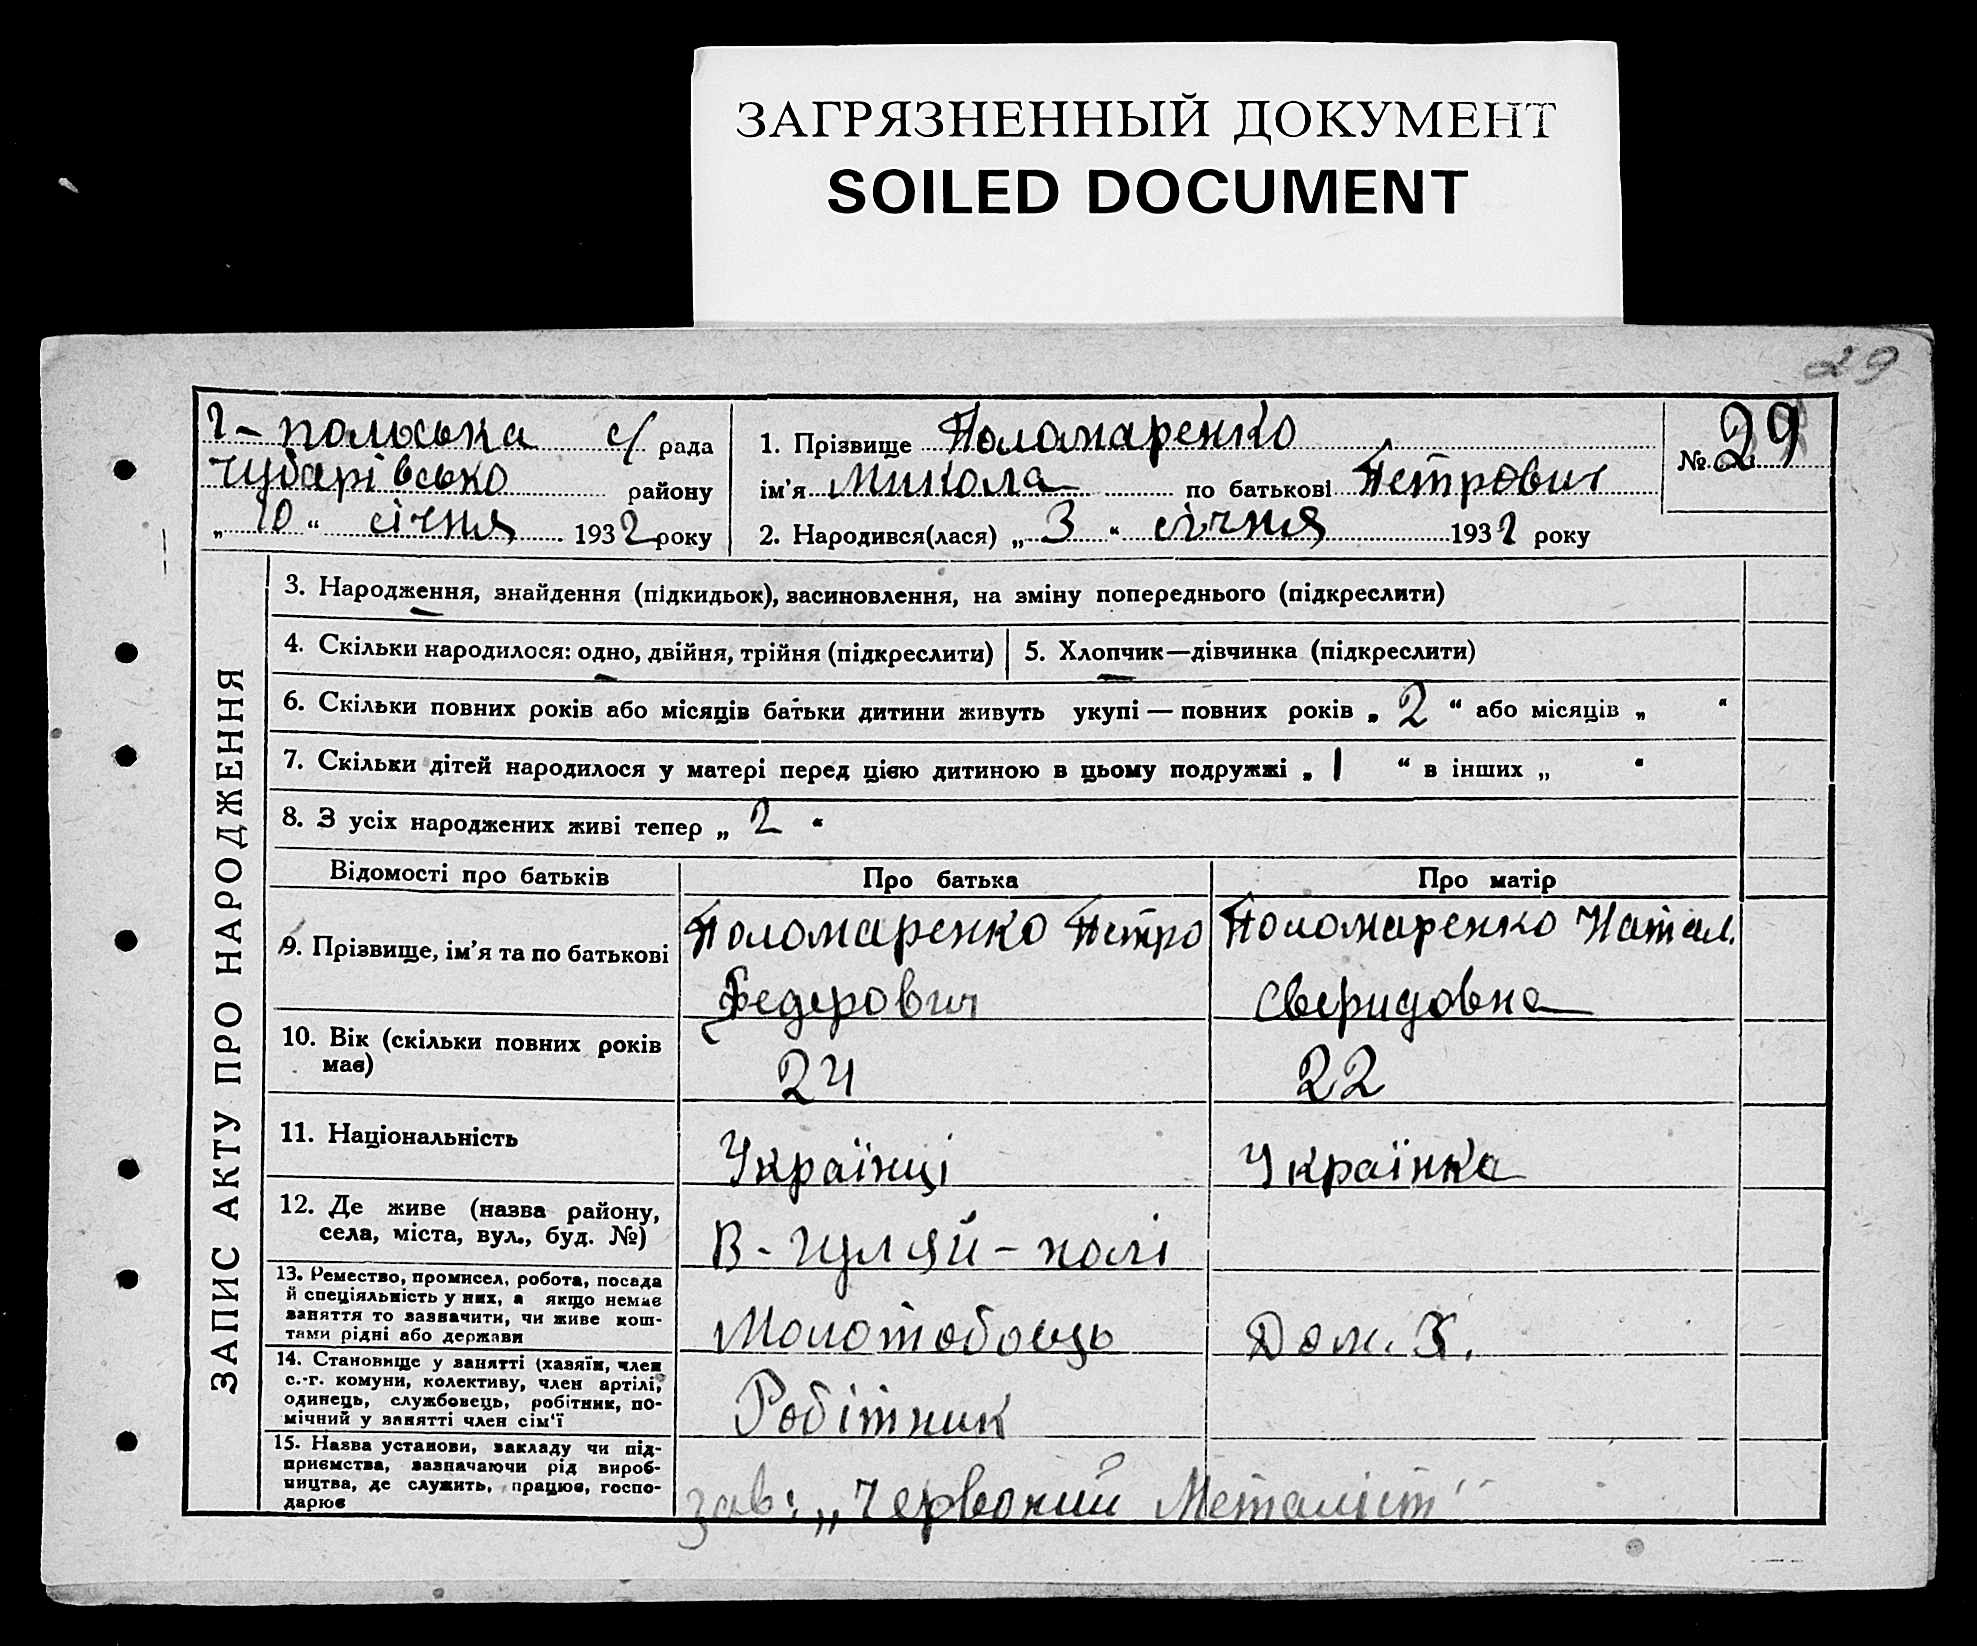 ЗАГРЯЗНЕННЫЙ ДОКУМЕНТ
SOILED DOCUMENT
29
Г-польська с/ рада
Чубарівсько району
„ 10 “ січня 1932 року
1. Прізвище Поломаренко
ім'я Микола по батькові Петрович
2. Народився(лася) „ 3 “ січня 1932 року
№ 29
ЗАПИС АКТУ ПРО НАРОДЖЕННЯ
3. Народження, знайдення (підкидьок), засиновлення, на зміну попереднього (підкреслити)
4. Скільки народилося: одно, двійня, трійня (підкреслити)
5. Хлопчик—дівчинка (підкреслити)
6. Скільки повних років або місяців батьки дитини живуть укупі — повних років „ 2 “ або місяців „ “
7. Скільки дітей народилося у матері перед цією дитиною в цьому подружжі „ 1 “ в інших „ “
8. З усіх народжених живі тепер „ 2 “
Відомості про батьків
Про батька
Про матір
9. Прізвище, ім'я та по батькові
Поломаренко Петро
Федерович
Поломаренко Натал.
Сверидовна
10. Вік (скільки повних років
має)
24
22
11. Національність
Українці
Українка
12. Де живе (назва району,
села, міста, вул., буд. №)
В-Гуляй-полі
13. Ремество, промисел, робота, посада
й спеціяльність у них, а якщо немає
заняття то зазначити, чи живе кош-
тами рідні або держави
Молотобоець
Дом. Х.
14. Становище у занятті (хазяїн, член
с.-г. комуни, колективу, член артілі,
одинець, службовець, робітник, по-
мічний у занятті член сім'ї
Робітник
15. Назва установи, закладу чи під-
приємства, зазначаючи рід вироб-
ництва, де служить, працює, госпо-
дарює
зав: „Червоний Металіст“